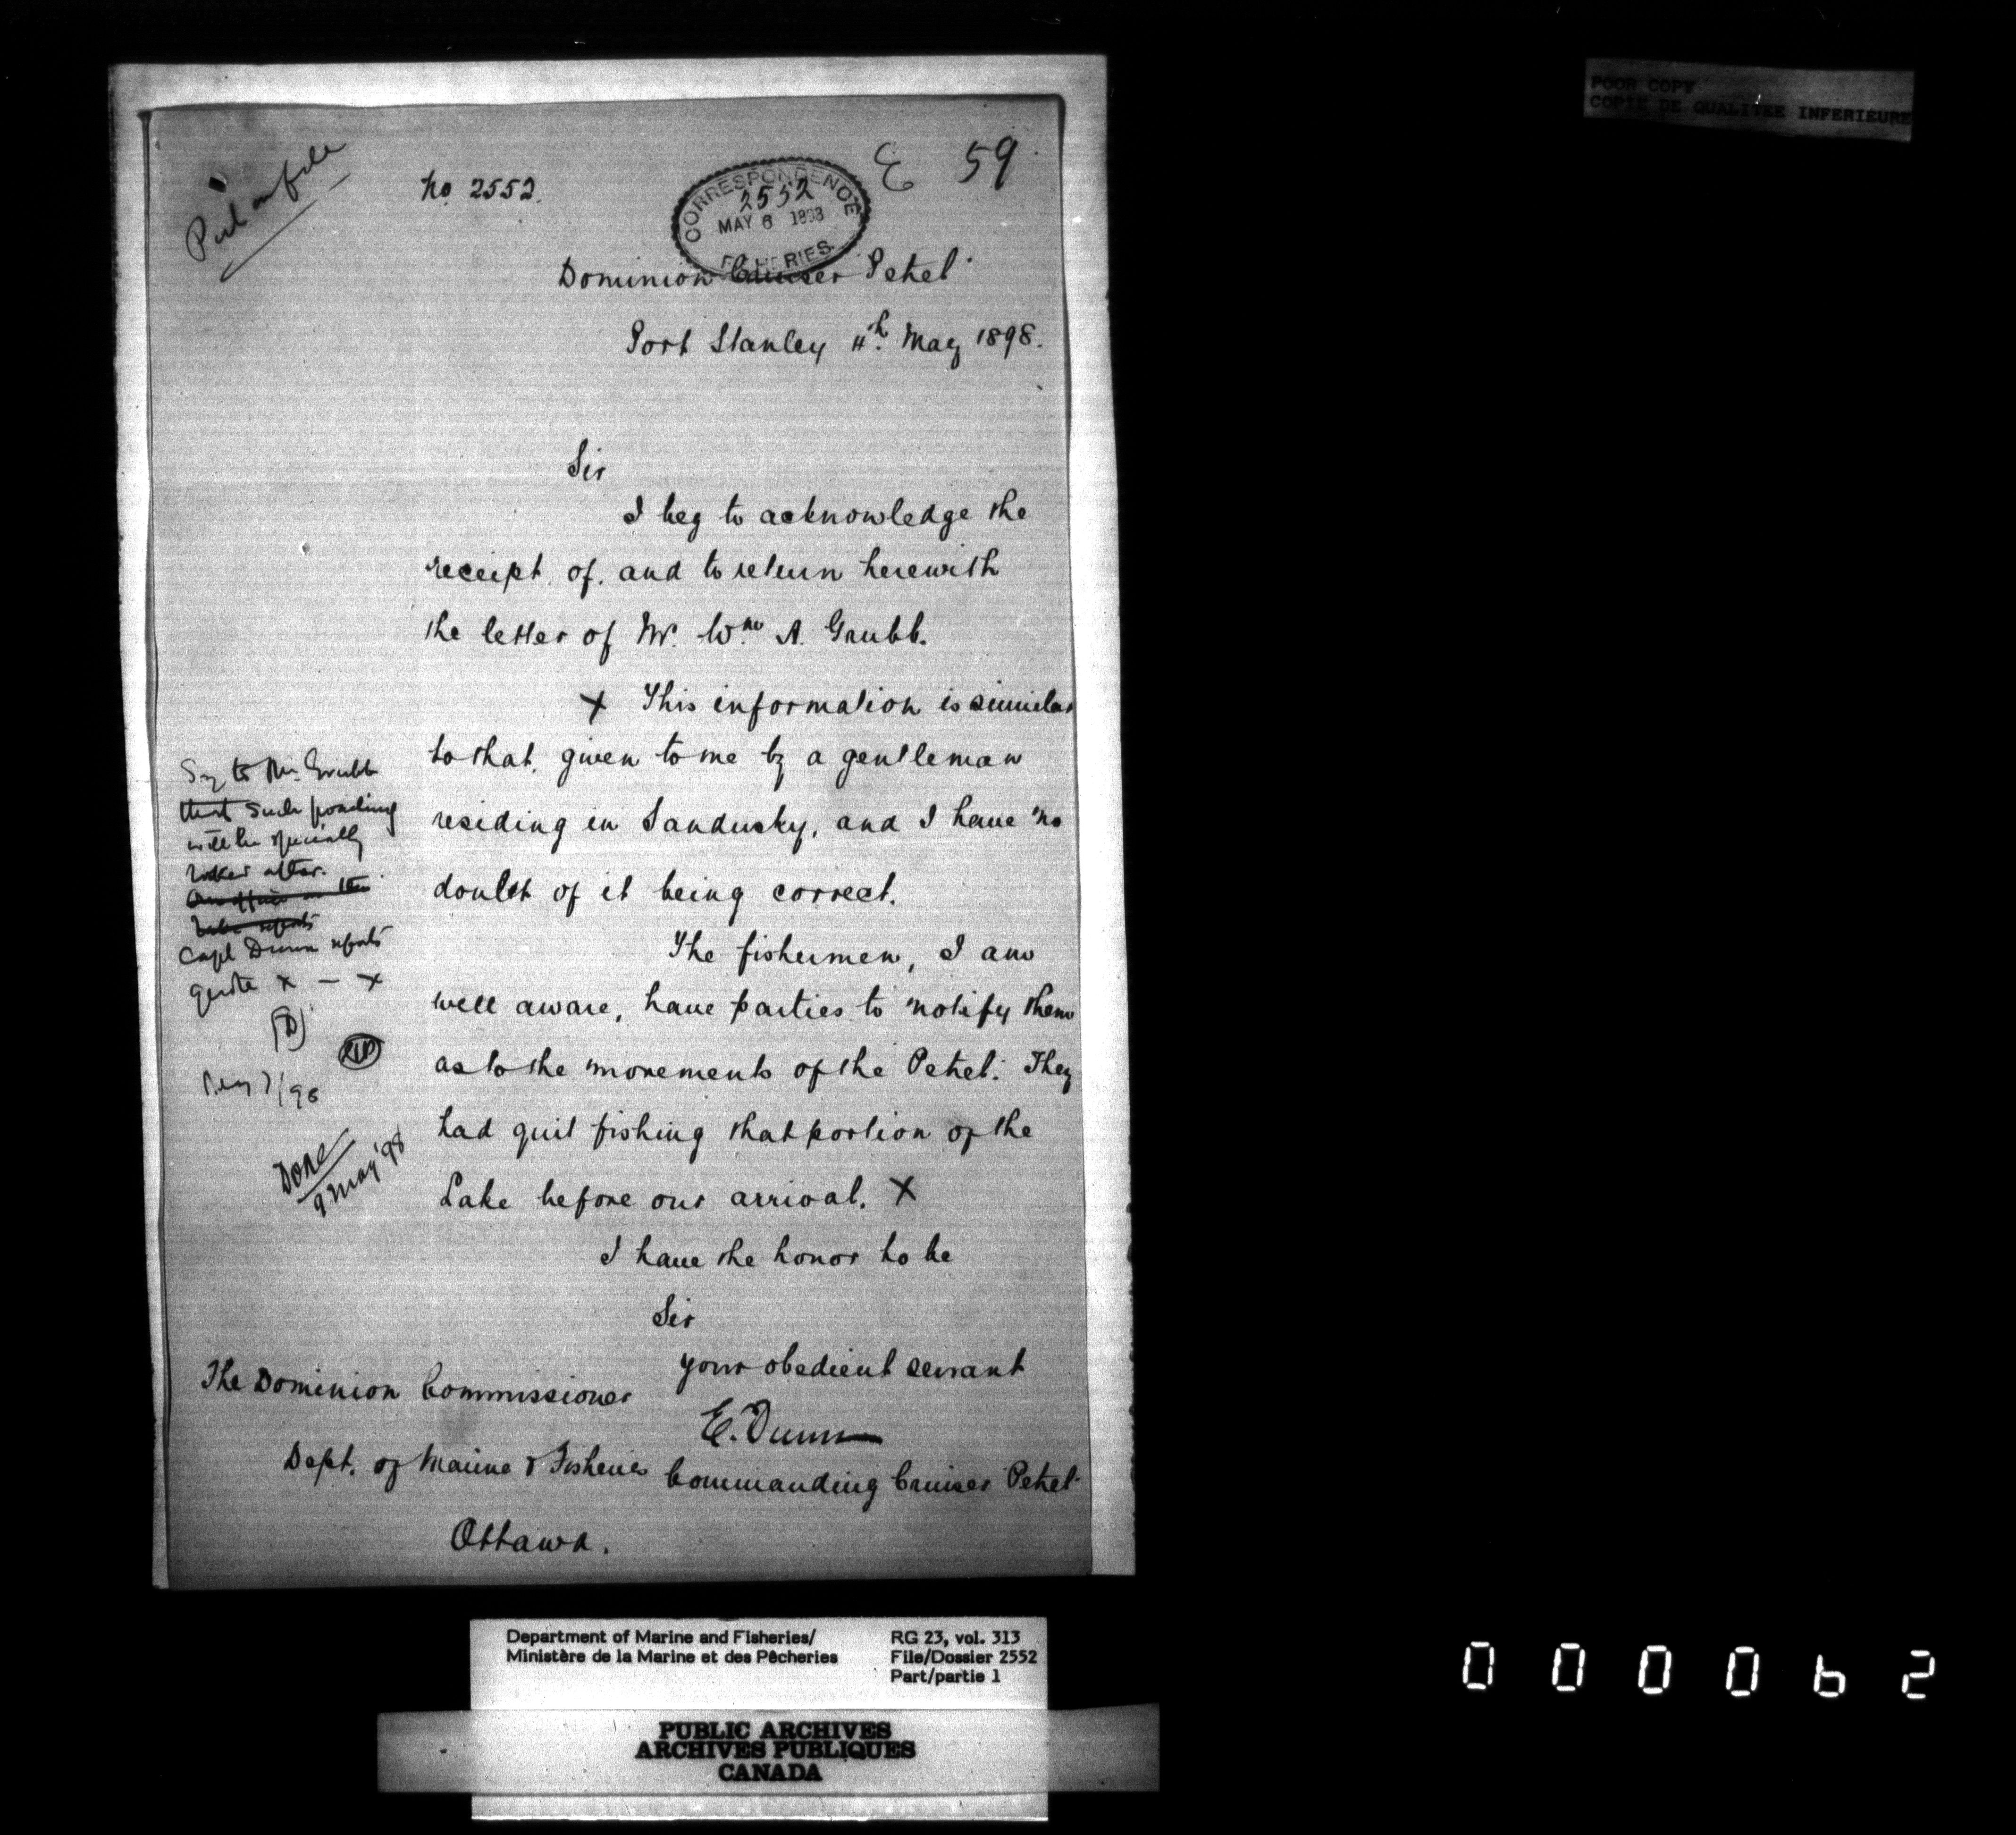 POOR COPY
COPIE DE QUALITEE INFERIEURE
Put on file
No 2552.
CORRESPONDENCE
2552
MAY 6 1898
FISHERIES.
E 59
Dominion Cruiser Petrel
Port Stanley 4th May 1898.
Sir
I beg to acknowledge the
receipt of, and to return herewith
the letter of Mr. Wm A. Grubb.
X This information is similar
to that given to me by a gentleman
residing in Sandusky, and I have no
doubt of it being correct.
The fishermen, I am
well aware, have parties to notify them
as to the movements of the Petrel. They
had quit fishing that portion of the
Lake before our arrival. X
I have the honor to be
Sir
your obedient servant
E. Dunn
Commanding Cruiser Petrel
The Dominion Commissioner
Dept. of Marine & Fisheries
Ottawa.
Say to Mr. Grubb
that such poaching
will be specially
looked after.
Capt Dunn reports
quote x — x
May 7/98
Done
9 May '98
Department of Marine and Fisheries/
Ministère de la Marine et des Pêcheries
RG 23, vol. 313
File/Dossier 2552
Part/partie 1
PUBLIC ARCHIVES
ARCHIVES PUBLIQUES
CANADA
000062